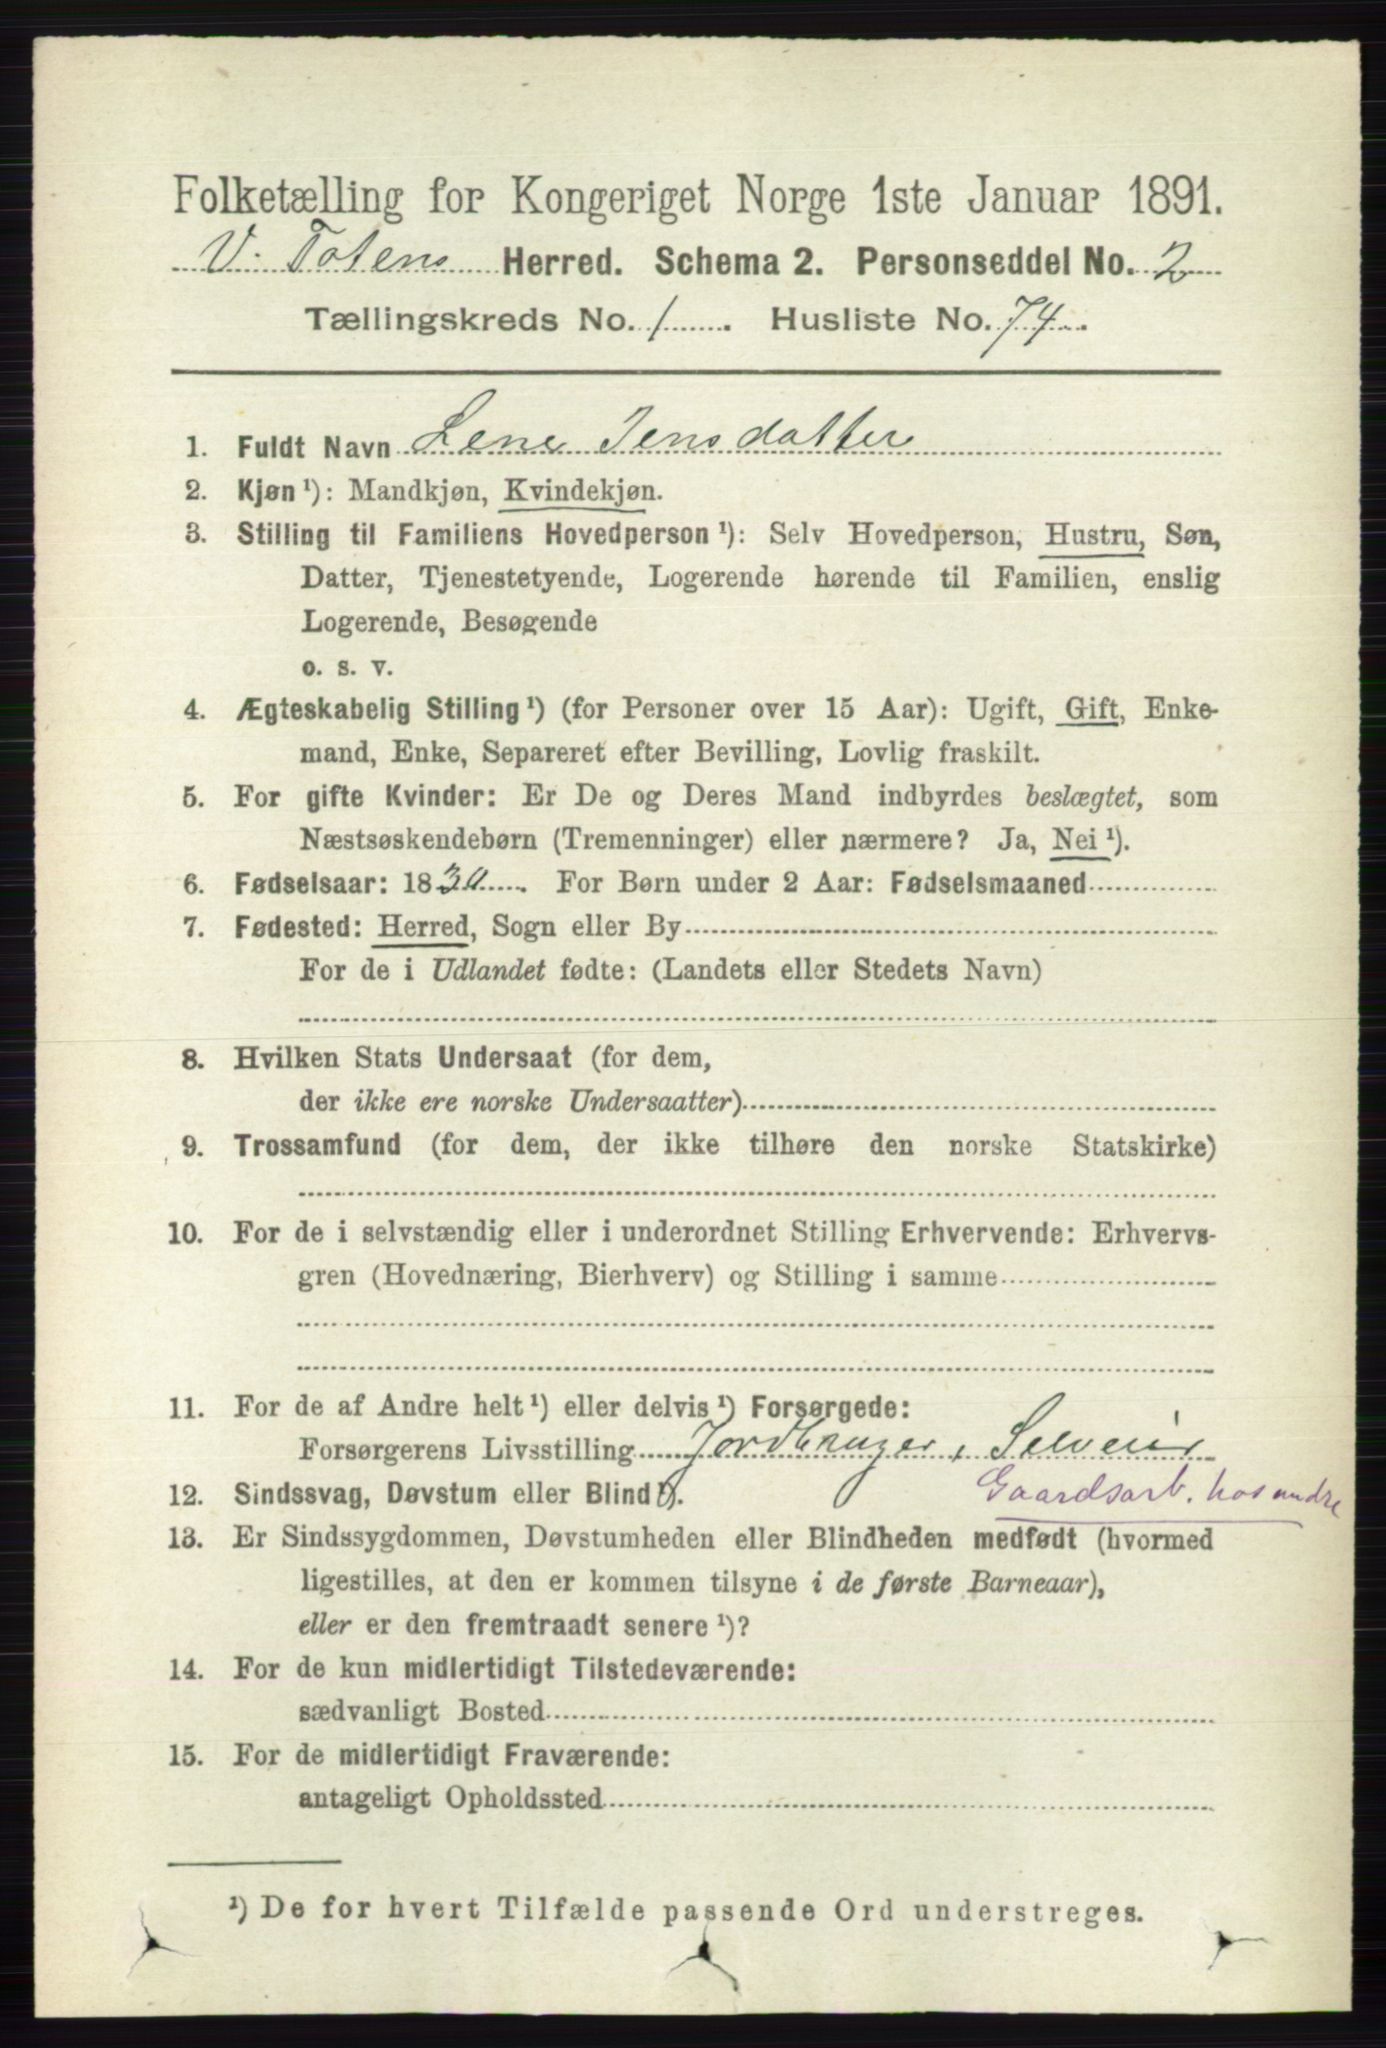 Folketælling for Kongeriget Norge 1ste Januar 1891.
V. Totens Herred. Schema 2. Personseddel No. 2
Tællingskreds No. 1. Husliste No. 74.
1. Fuldt Navn Lene Jensdatter
2. Kjøn ¹): Mandkjøn, Kvindekjøn.
3. Stilling til Familiens Hovedperson ¹): Selv Hovedperson, Hustru, Søn,
Datter, Tjenestetyende, Logerende hørende til Familien, enslig
Logerende, Besøgende
o. s. v.
4. Ægteskabelig Stilling ¹) (for Personer over 15 Aar): Ugift, Gift, Enke-
mand, Enke, Separeret efter Bevilling, Lovlig fraskilt.
5. For gifte Kvinder: Er De og Deres Mand indbyrdes beslægtet, som
Næstsøskendebørn (Tremenninger) eller nærmere? Ja, Nei ¹).
6. Fødselsaar: 1830. For Børn under 2 Aar: Fødselsmaaned
7. Fødested: Herred, Sogn eller By
For de i Udlandet fødte: (Landets eller Stedets Navn)
8. Hvilken Stats Undersaat (for dem,
der ikke ere norske Undersaatter)
9. Trossamfund (for dem, der ikke tilhøre den norske Statskirke)
10. For de i selvstændig eller i underordnet Stilling Erhvervende: Erhvervs-
gren (Hovednæring, Bierhverv) og Stilling i samme
11. For de af Andre helt ¹) eller delvis ¹) Forsørgede:
Forsørgerens Livsstilling Jordbruger, Selveier
12. Sindssvag, Døvstum eller Blind ¹). Gaardsarb. hos andre
13. Er Sindssygdommen, Døvstumheden eller Blindheden medfødt (hvormed
ligestilles, at den er kommen tilsyne i de første Barneaar),
eller er den fremtraadt senere ¹)?
14. For de kun midlertidigt Tilstedeværende:
sædvanligt Bosted
15. For de midlertidigt Fraværende:
antageligt Opholdssted
¹) De for hvert Tilfælde passende Ord understreges.